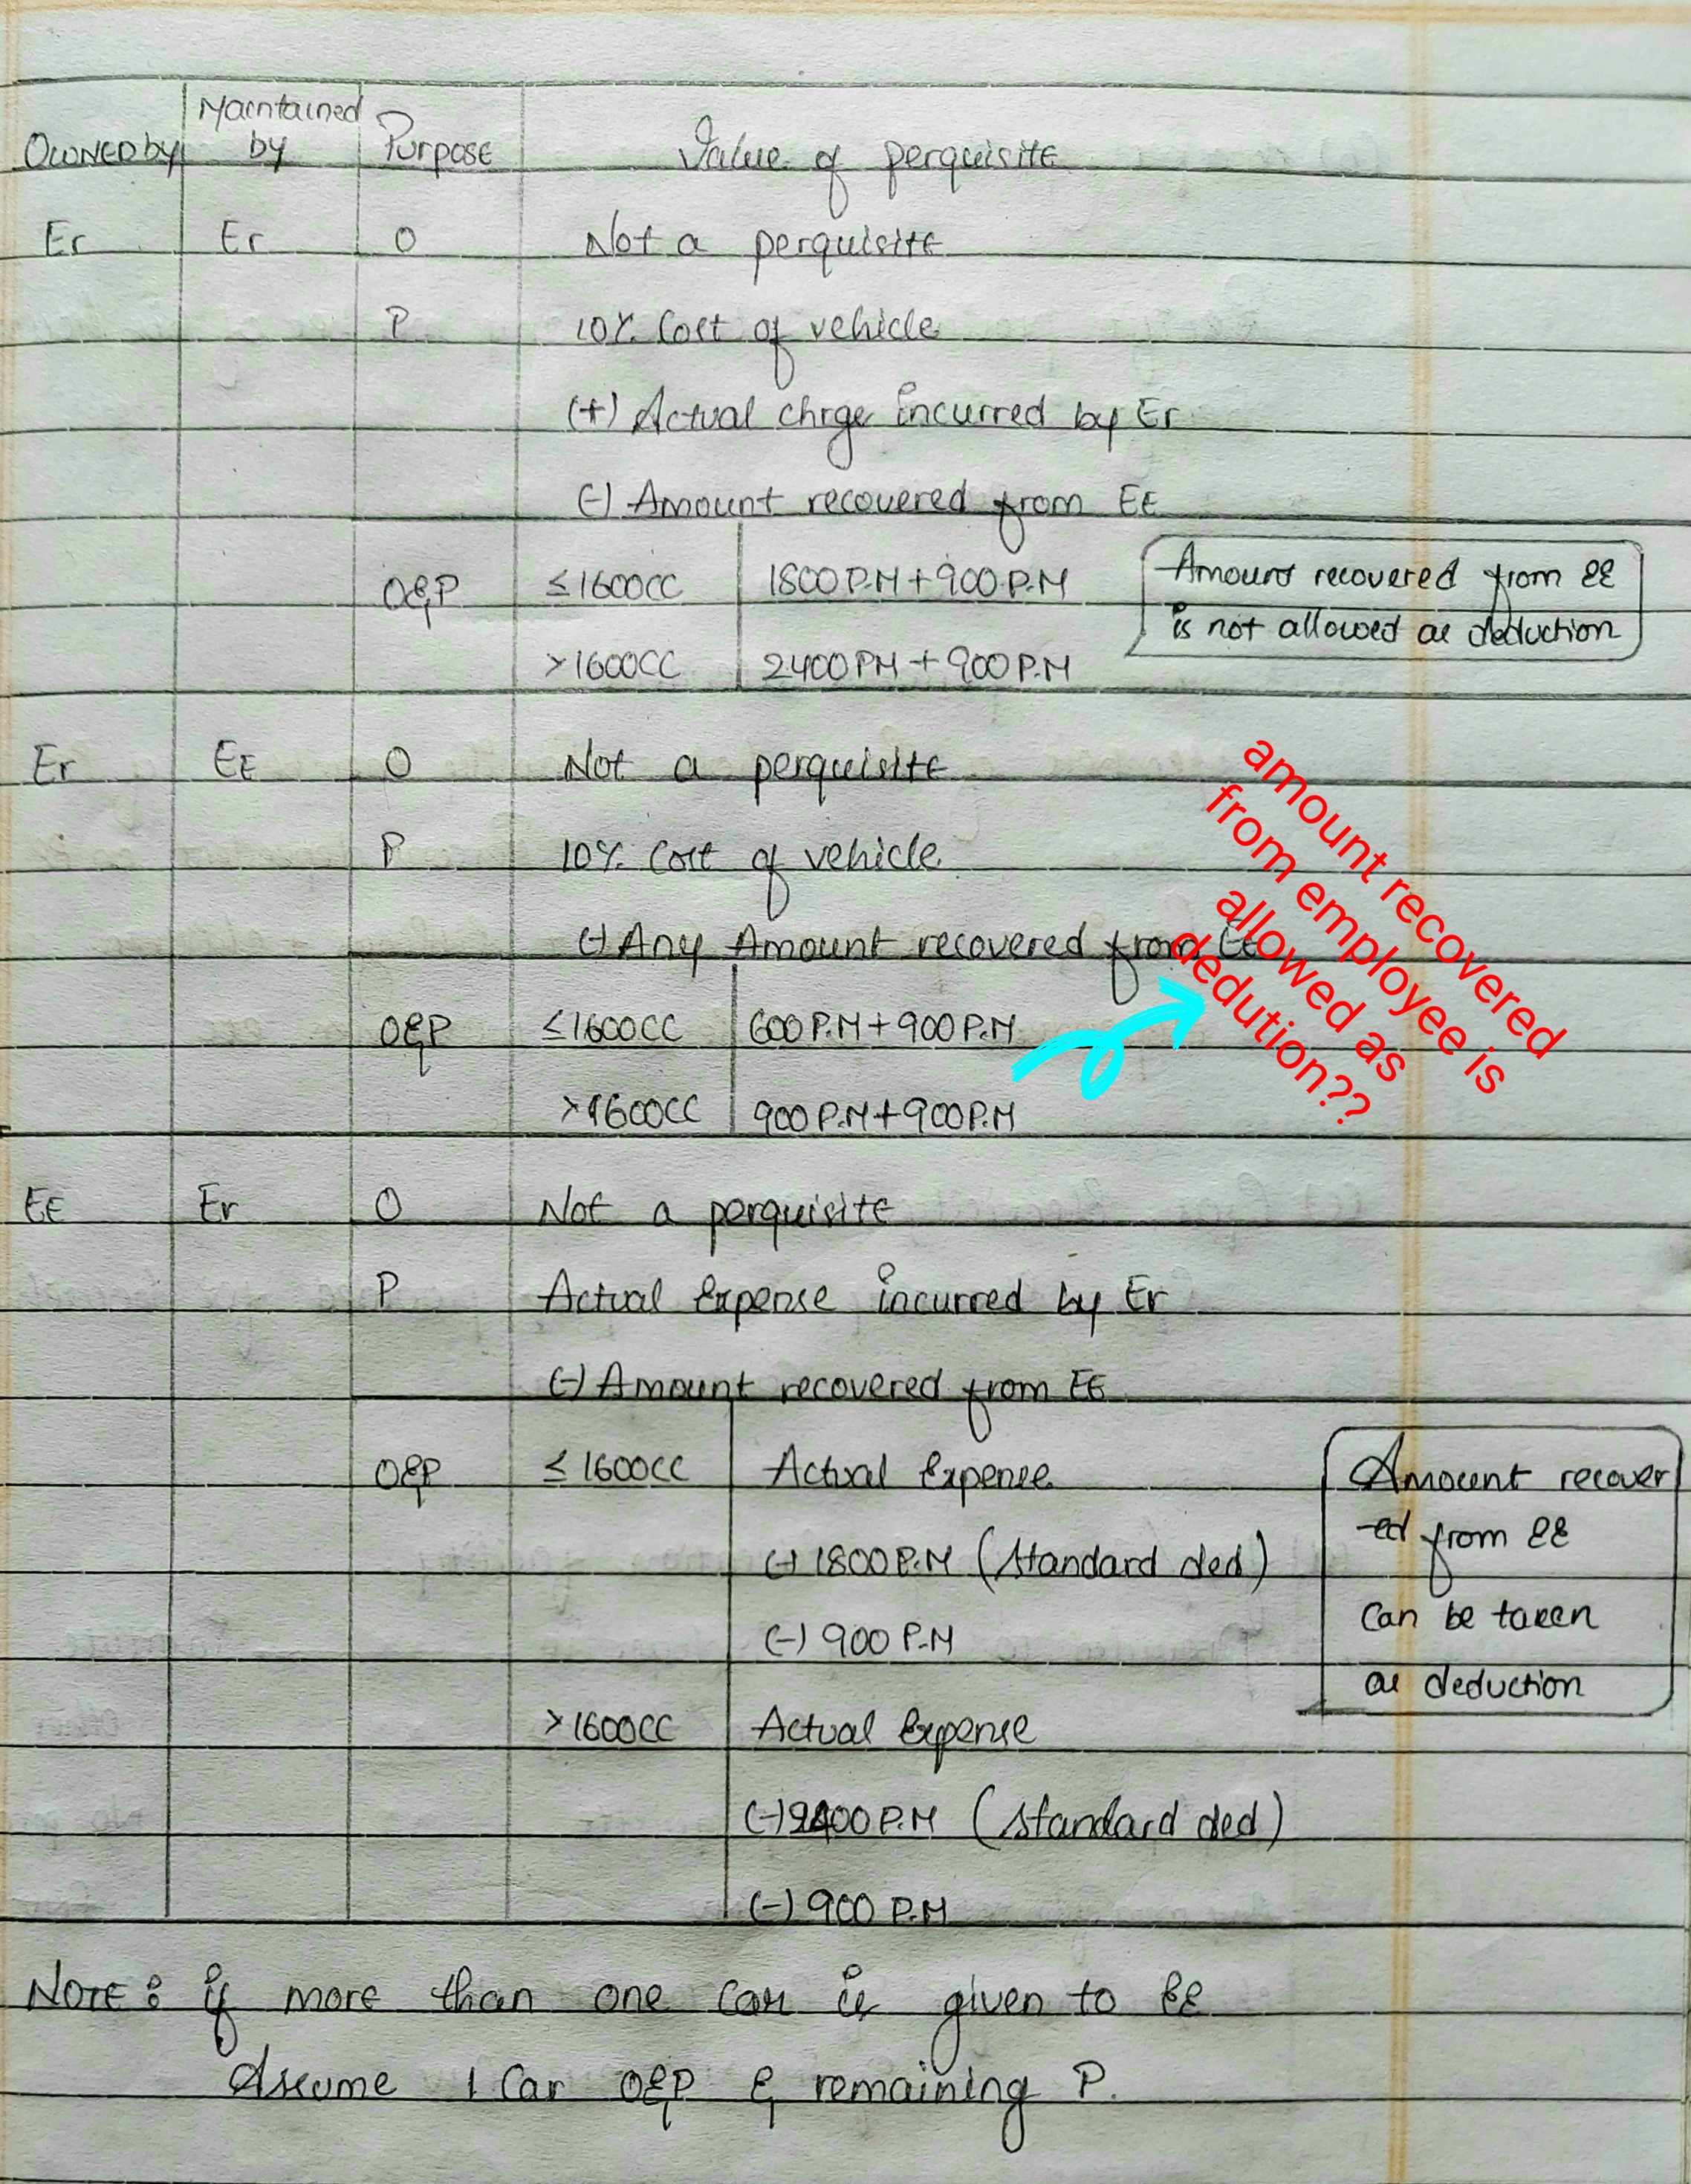 Maintained
OWNED by by Purpose Value of perquisite
Er Er O Not a perquisite
P 10% Cost of vehicle
(+) Actual chrge incurred by Er
(-) Amount recovered from EE
O&P ≤1600CC 1800 P.M + 900 P.M Amount recovered from EE
is not allowed as deduction
>1600CC 2400 PM + 900 P.M
Er EE O Not a perquisite
P 10% Cost of vehicle
(-) Any Amount recovered from EE
amount recovered
from employee is
allowed as
dedution??
O&P ≤1600CC 600 P.M + 900 P.M
>1600CC 900 P.M + 900 P.M
EE Er O Not a perquisite
P Actual Expense incurred by Er
(-) Amount recovered from EE
O&P ≤ 1600CC Actual Expense Amount recover
(-) 1800 P.M (Standard ded) -ed from EE
(-) 900 P.M can be taken
as deduction
>1600CC Actual Expense
(-) 2400 P.M (Standard ded)
(-) 900 P.M
NOTE: if more than one car is given to EE
Assume 1 Car O&P & remaining P.